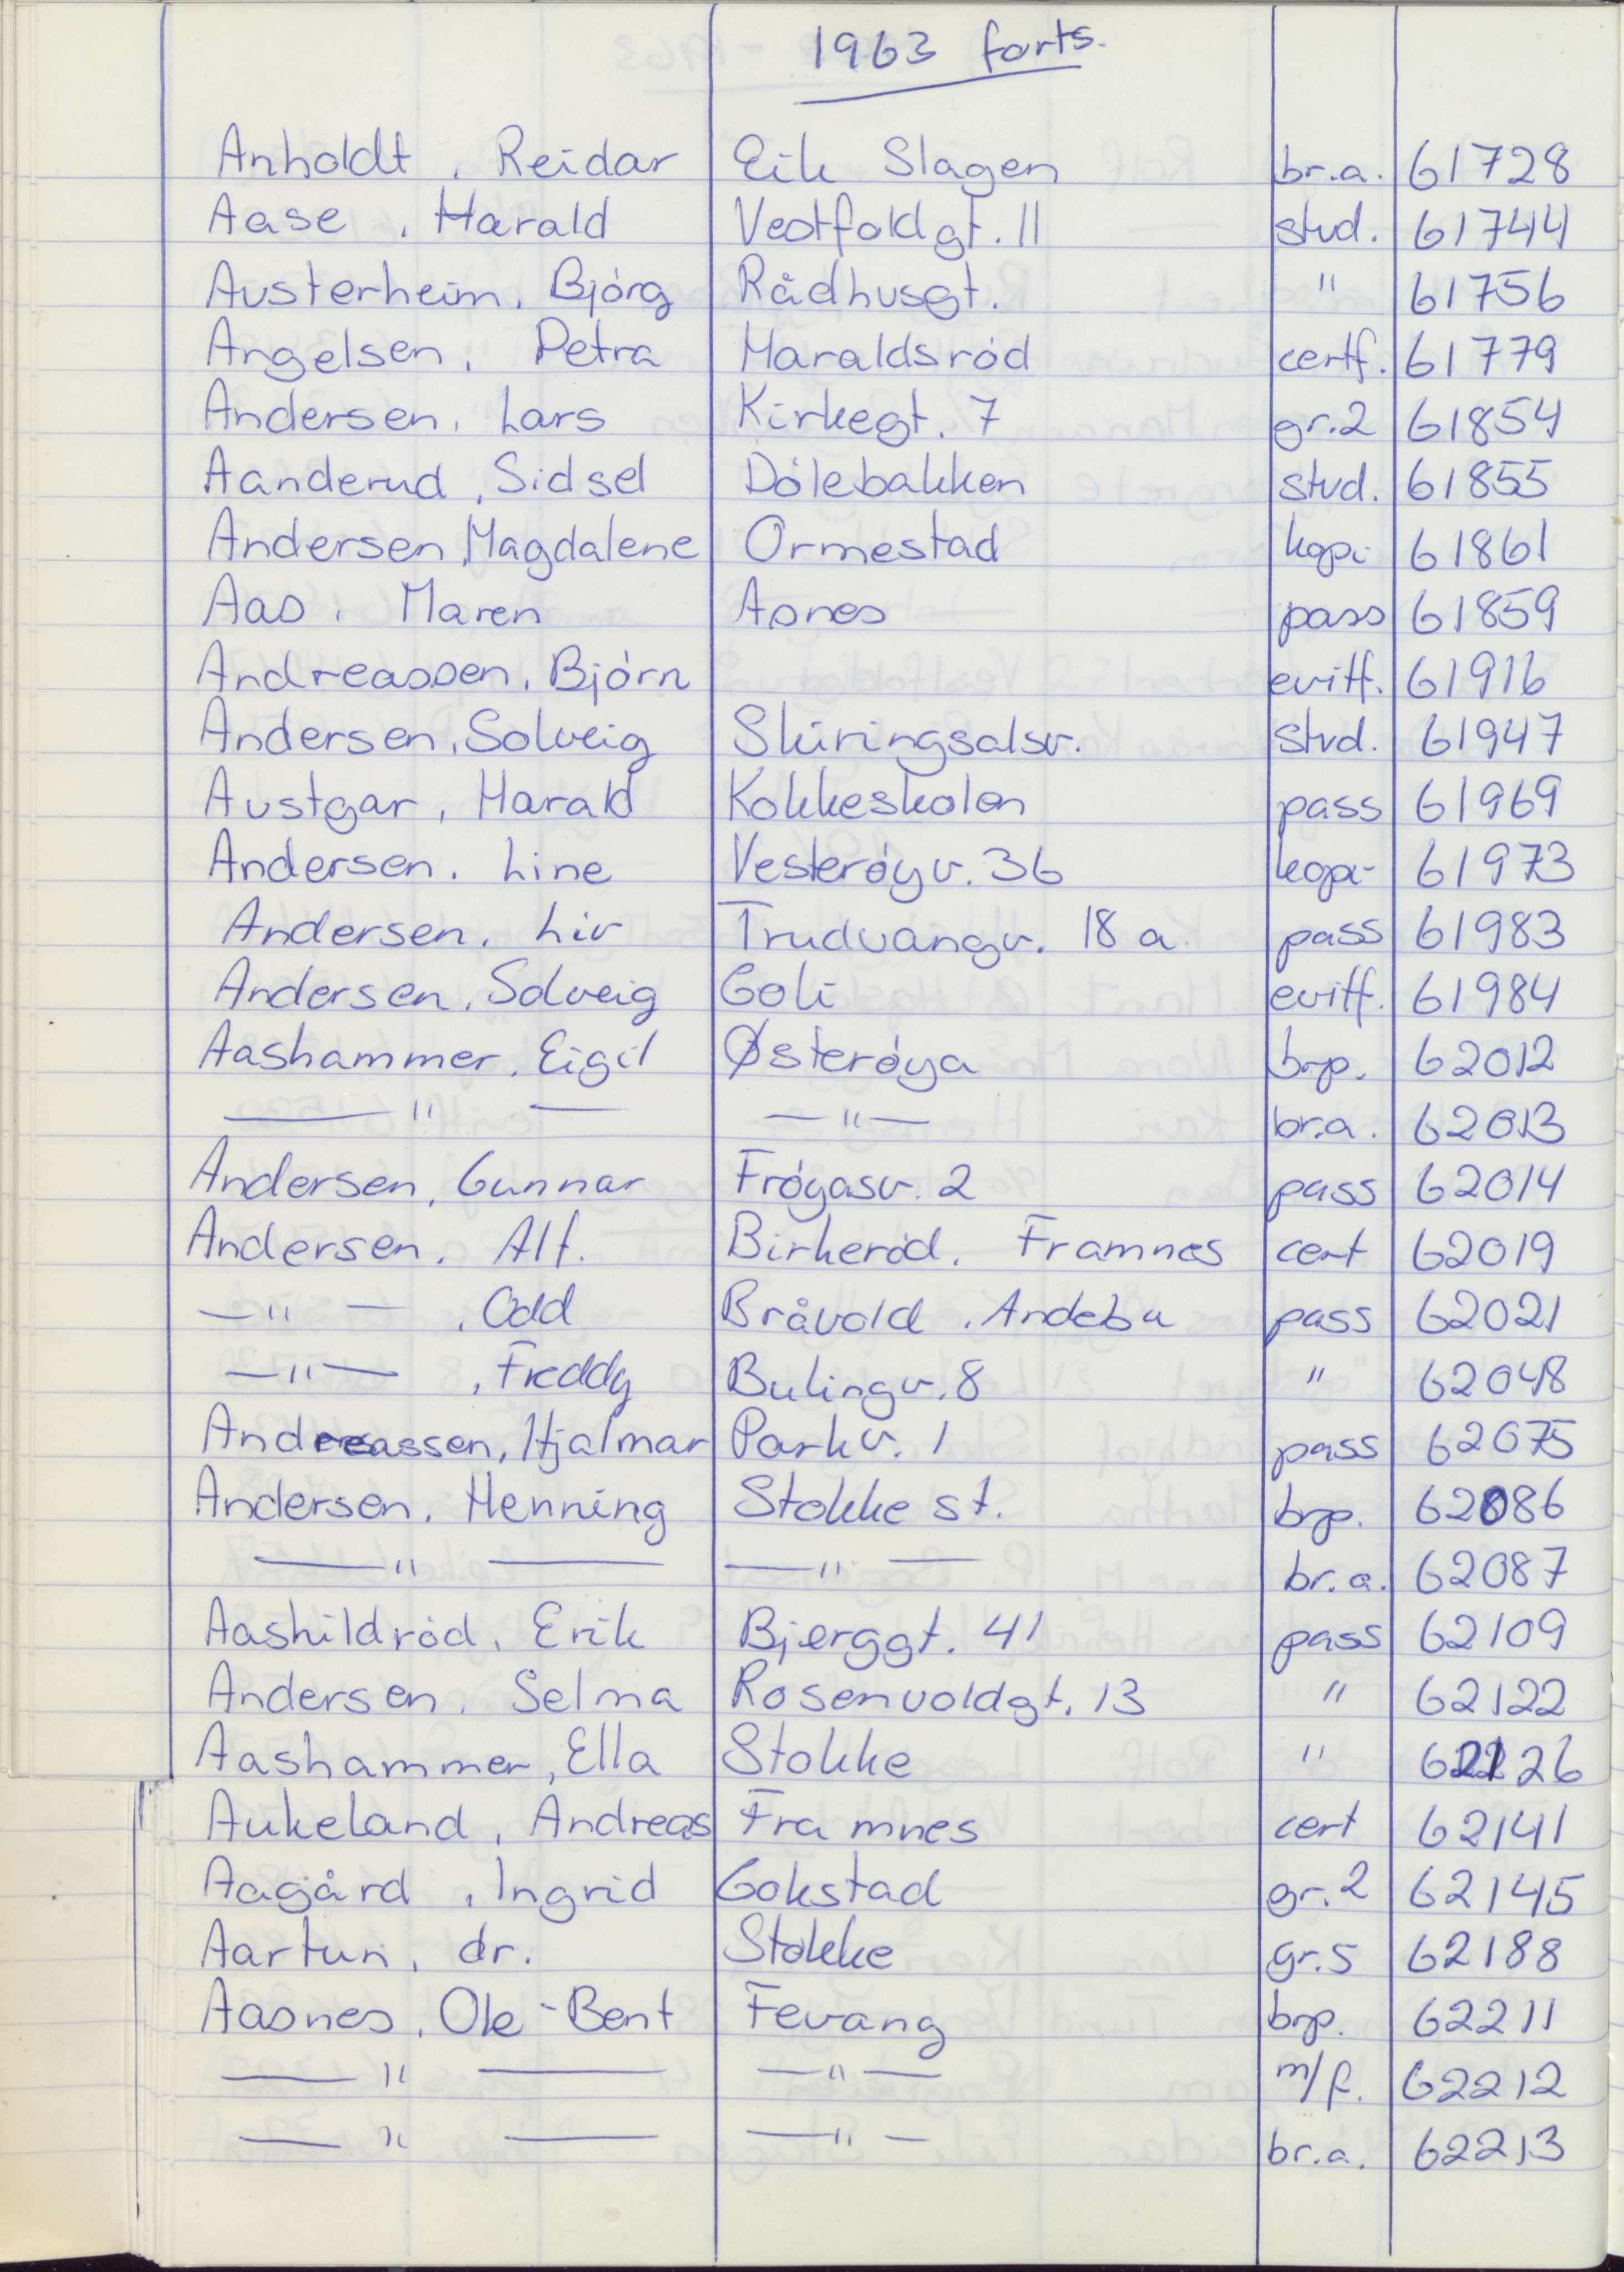 1963 forts.
Anholdt, Reidar Eik Slagen br.a. 61728
Aase, Harald Vestfoldgt. 11 stud. 61744
Austerheim, Bjórg Rådhusgt. " 61756
Angelsen, Petra Haraldsród certf. 61779
Andersen, Lars Kirkegt. 7 gr.2 61854
Aanderud, Sidsel Dólebakken stud. 61855
Andersen, Magdalene Ormestad kopi 61861
Aas, Maren Asnes pass 61859
Andreassen, Bjórn evitf. 61916
Andersen, Solveig Skiringsalsv. stud. 61947
Austgar, Harald Kokkeskolen pass 61969
Andersen, Line Vesteróyv. 36 kopi 61973
Andersen, Liv Trudvangv. 18 a pass 61983
Andersen, Solveig Goli evitf. 61984
Aashammer, Eigil Østerøya brp. 62012
— " — — " — br.a. 62013
Andersen, Gunnar Fróyasv. 2 pass 62014
Andersen, Alf. Birkeród, Framnes cert 62019
— " —, Odd Bråvold, Andebu pass 62021
— " —, Freddy Bulingv. 8 " 62048
Andreassen, Hjalmar Parkv. 1 pass 62075
Andersen, Henning Stokke st. brp. 62086
— " — — " — br.a. 62087
Aashildród, Erik Bjerggt. 41 pass 62109
Andersen, Selma Rosenvoldgt. 13 " 62122
Aashammer, Ella Stokke " 62126
Aukeland, Andreas Framnes cert 62141
Aagård, Ingrid Gokstad gr.2 62145
Aartun, dr. Stokke gr.5 62188
Aasnes, Ole-Bent Fevang brp. 62211
— " — — " — m/f. 62212
— " — — " — br.a. 62213